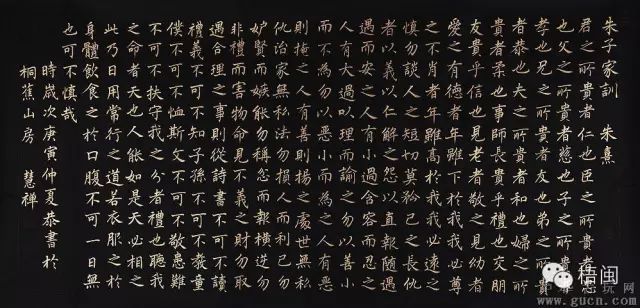 朱子家訓 朱熹
君之所貴者仁也臣之所貴者忠
也父之所貴者慈也子之所貴者
孝也兄之所貴者友也弟之所貴
者恭也夫之所貴者和也婦之所
貴者柔也事師長貴乎禮也交朋
友貴乎信也見老者敬之見幼者
愛之有德者年雖下於我我必尊
之不肖者年雖高於我我必遠之
慎勿談人之短切莫矜己之長仇
者以義以仁解之怨以直報隨所
遇而安之人有小過含容而忍之
人有大過以理而諭之勿以善小
而不為勿以惡小而為之人有惡
則掩之人有善則揚之處世無私
仇治家無私法勿損人而利己勿
妒賢而嫉能勿稱忿而報橫逆勿
非禮而害物命見不義之財勿取
遇合理之事則從詩書不可不讀
禮義不可不知子孫不可不教童
僕不可不恤斯文不可不敬患難
不可不扶守我之分者禮也聽我
之命者天也人能如是天必相之
此乃日用常行之道若衣服之於
身體飲食之於口腹不可一日無
也可不慎哉
時歲次庚寅仲夏恭書於
桐蕉山房 慧禪
梧闽
www.gucn.com